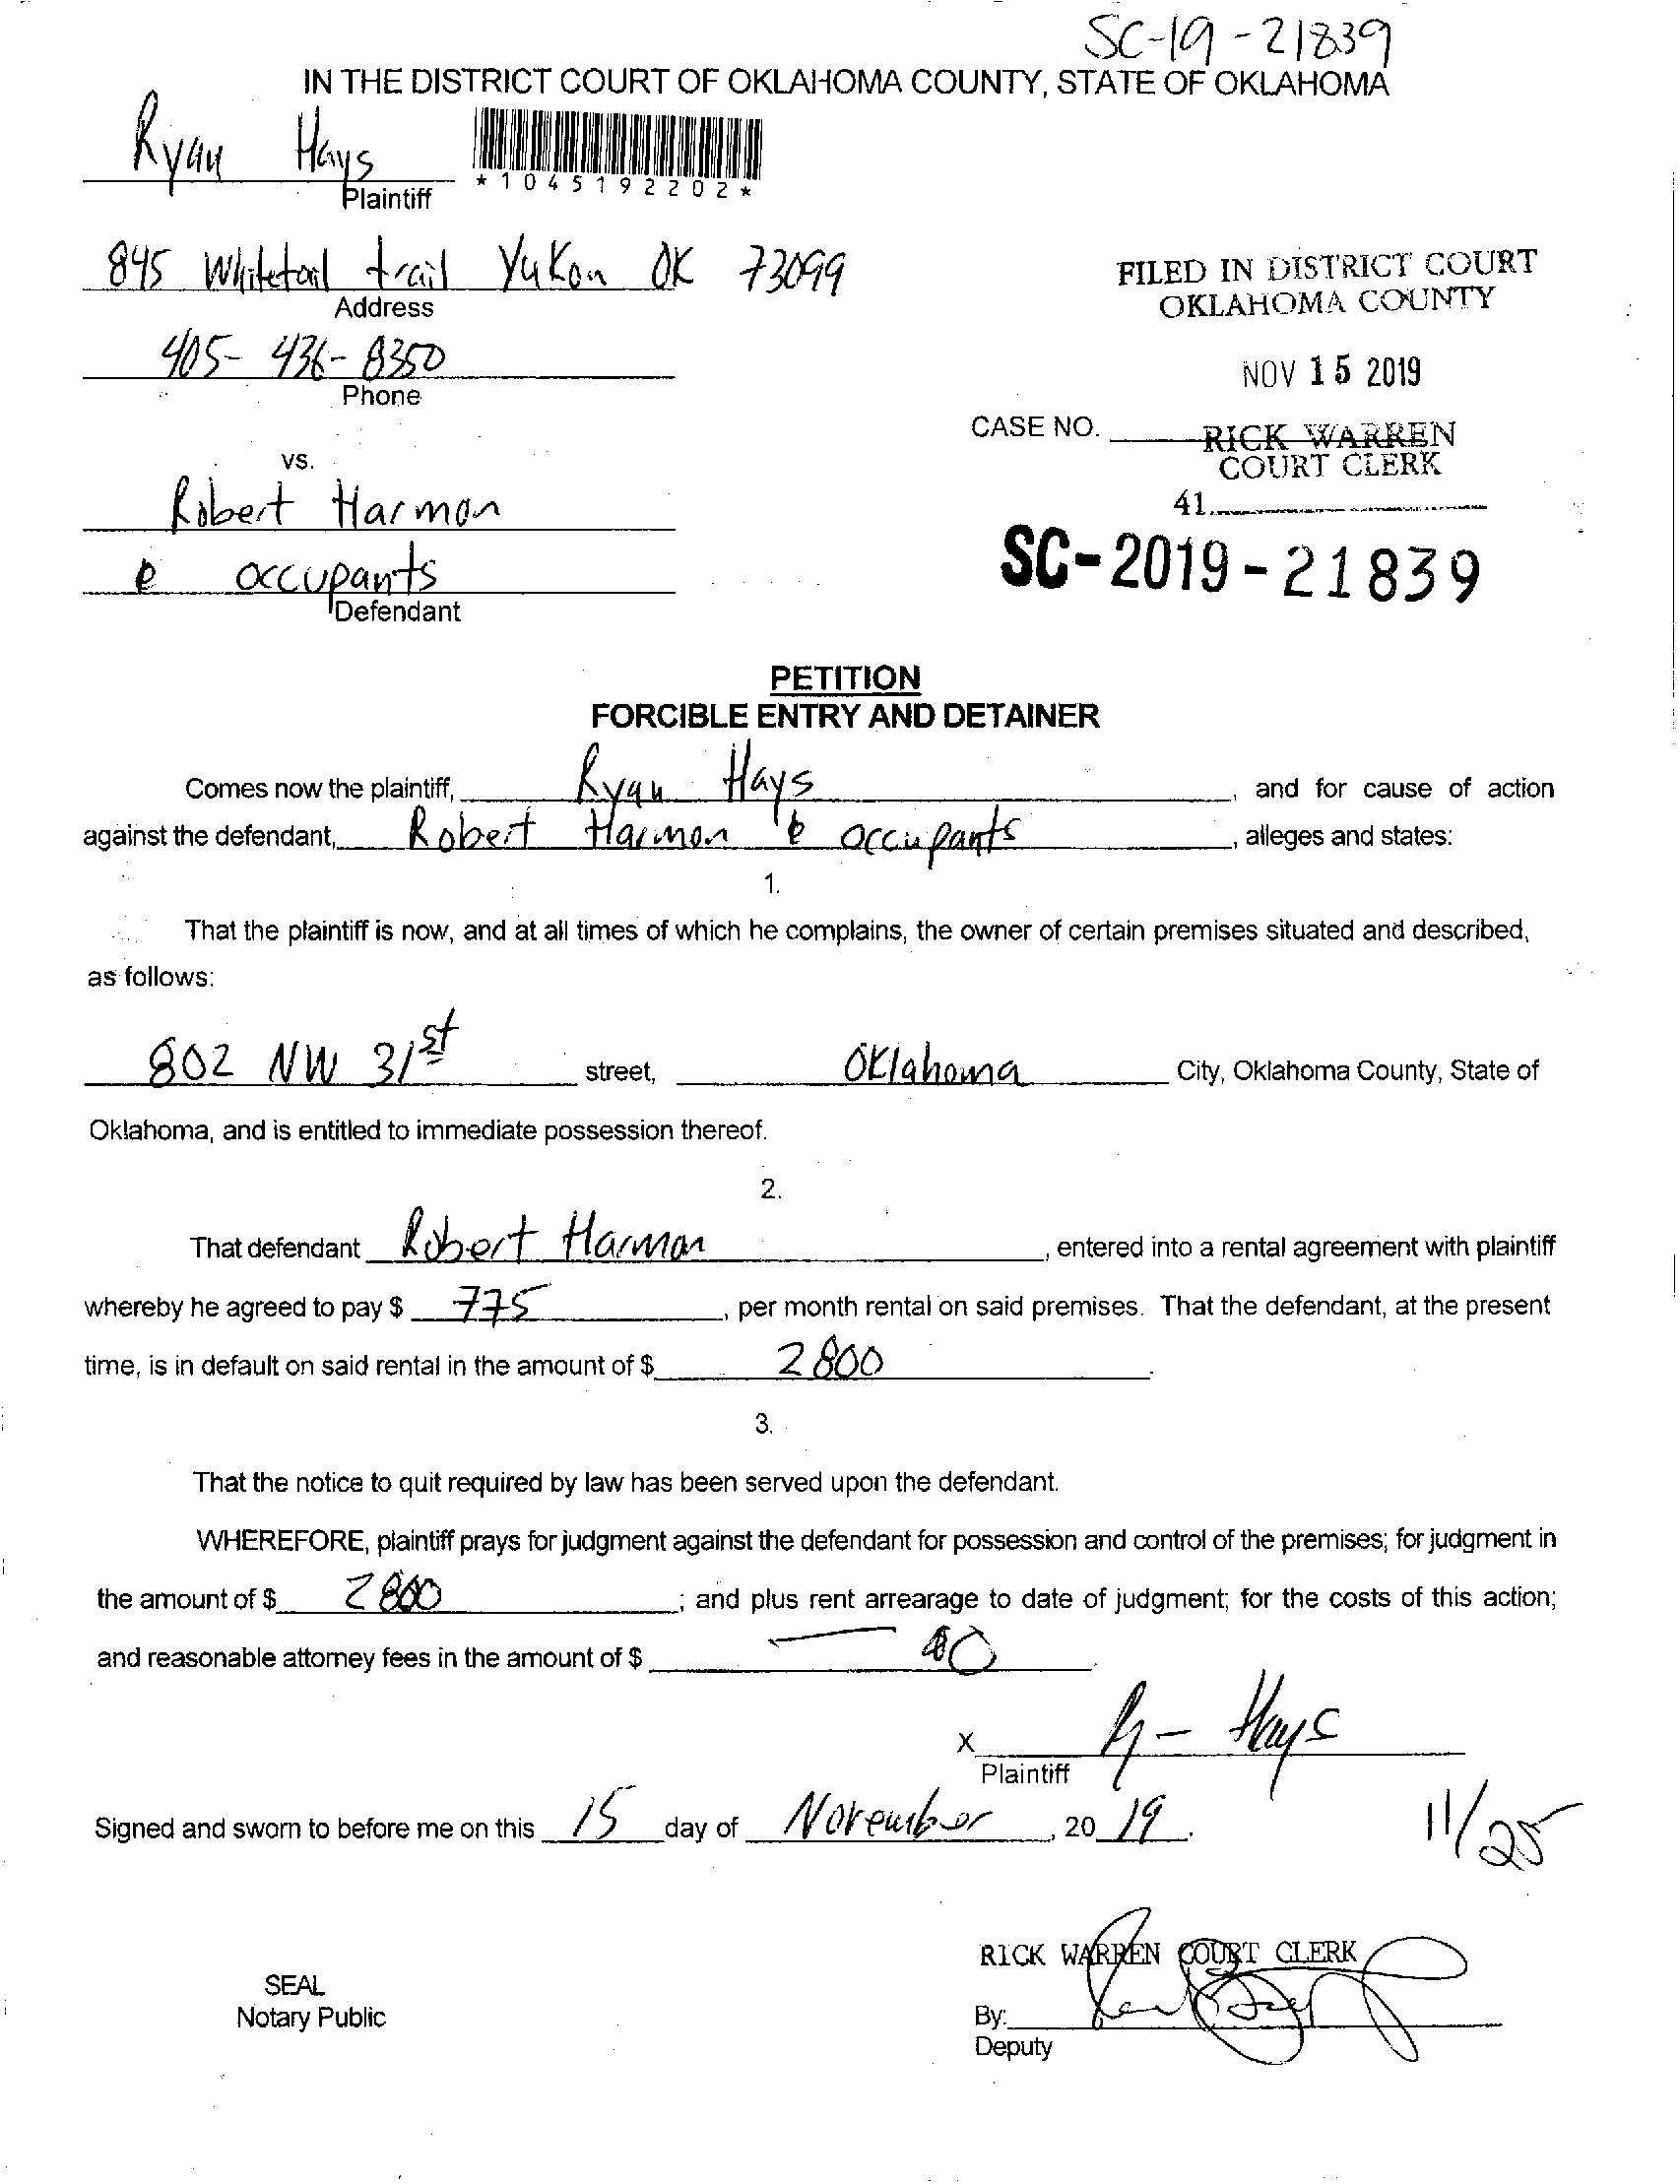 SC-19-21839
IN THE DISTRICT COURT OF OKLAHOMA COUNTY, STATE OF OKLAHOMA
Ryan Hays
*1045192202*
Plaintiff
845 Whitetail trail Yukon OK 73099
Address
FILED IN DISTRICT COURT
OKLAHOMA COUNTY
405-436-8350
Phone
NOV 15 2019
CASE NO.
RICK WARREN
COURT CLERK
41
vs.
Robert Harmon
& occupants
Defendant
SC-2019-21839
PETITION
FORCIBLE ENTRY AND DETAINER
Comes now the plaintiff, Ryan Hays, and for cause of action
against the defendant, Robert Harmon & occupants, alleges and states:
1.
That the plaintiff is now, and at all times of which he complains, the owner of certain premises situated and described,
as follows:
802 NW 31st street, Oklahoma City, Oklahoma County, State of
Oklahoma, and is entitled to immediate possession thereof.
2.
That defendant Robert Harmon, entered into a rental agreement with plaintiff
whereby he agreed to pay $ 775, per month rental on said premises. That the defendant, at the present
time, is in default on said rental in the amount of $ 2800.
3.
That the notice to quit required by law has been served upon the defendant.
WHEREFORE, plaintiff prays for judgment against the defendant for possession and control of the premises; for judgment in
the amount of $ 2800; and plus rent arrearage to date of judgment; for the costs of this action;
and reasonable attorney fees in the amount of $
X R- Hays
Plaintiff
Signed and sworn to before me on this 15 day of November, 20 19.
11/25
RICK WARREN COURT CLERK
SEAL
Notary Public
By:
Deputy